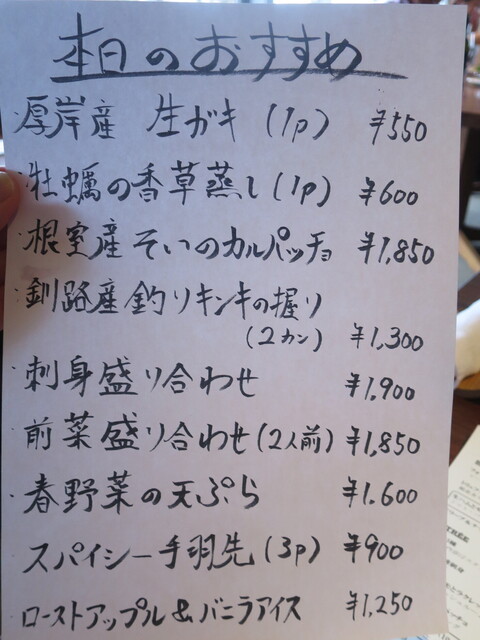 本日のおすすめ
・厚岸産 生ガキ (1p) ¥550
・牡蠣の香草蒸し(1p) ¥600
・根室産そいのカルパッチョ ¥1,850
・釧路産釣りキンキの握り
(2カン) ¥1,300
・刺身盛り合わせ ¥1,900
・前菜盛り合わせ(2人前) ¥1,850
・春野菜の天ぷら ¥1.600
・スパイシー手羽先(3p) ¥900
・ローストアップル&バニラアイス ¥1,250